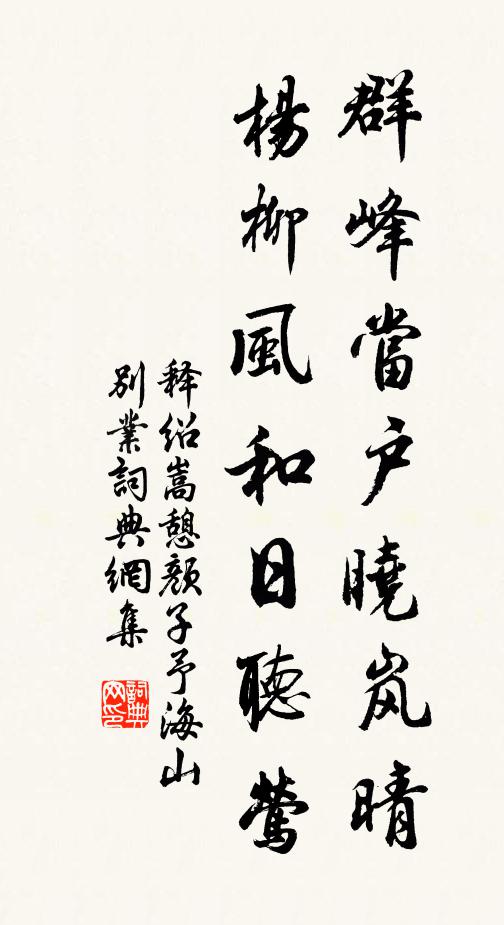 群峰當户曉岚晴
楊柳風和日聽鶯
释绍嵩憩颜子予海山
别業詞典網集
詞典網印